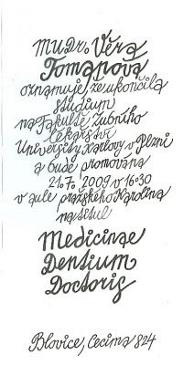 MUDr. Věra
Tomanová
oznamuje, že ukončila
studium
na Fakultě Zubního
Lékařství
University Karlovy v Plzni
a bude promována
21.7. 2009 v 16:30
v aule pražského Karolina
na titul
Medicinae
Dentium
Doctoris
Blovice, Cecima 824